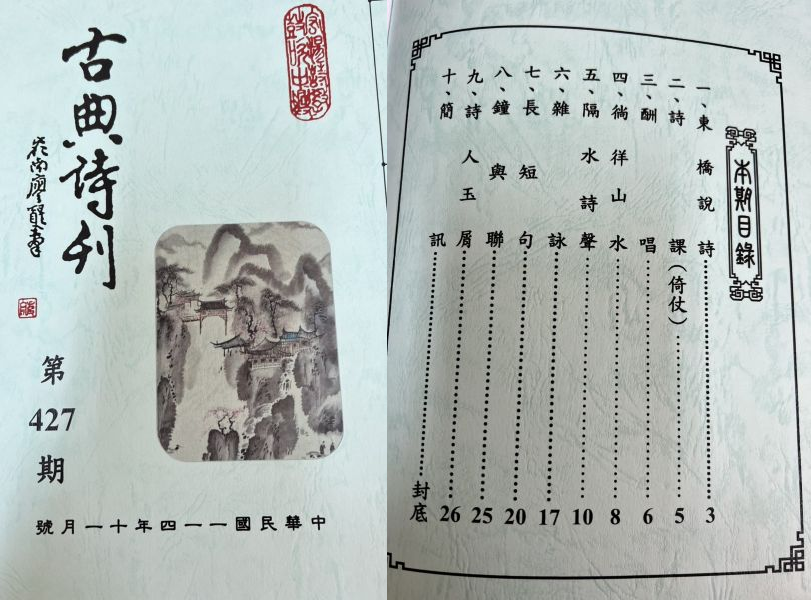 宏揚詩教
鼓吹中興
古典詩刊
第
427
期
中華民國一一四年十一月號
本期目錄
一、東橋說詩……3
二、詩課(倚仗)……5
三、酬唱……6
四、徜徉山水……8
五、隔水詩聲……10
六、雜詠……17
七、長短句……20
八、鐘與聯……25
九、詩人玉屑……26
十、簡訊……封底